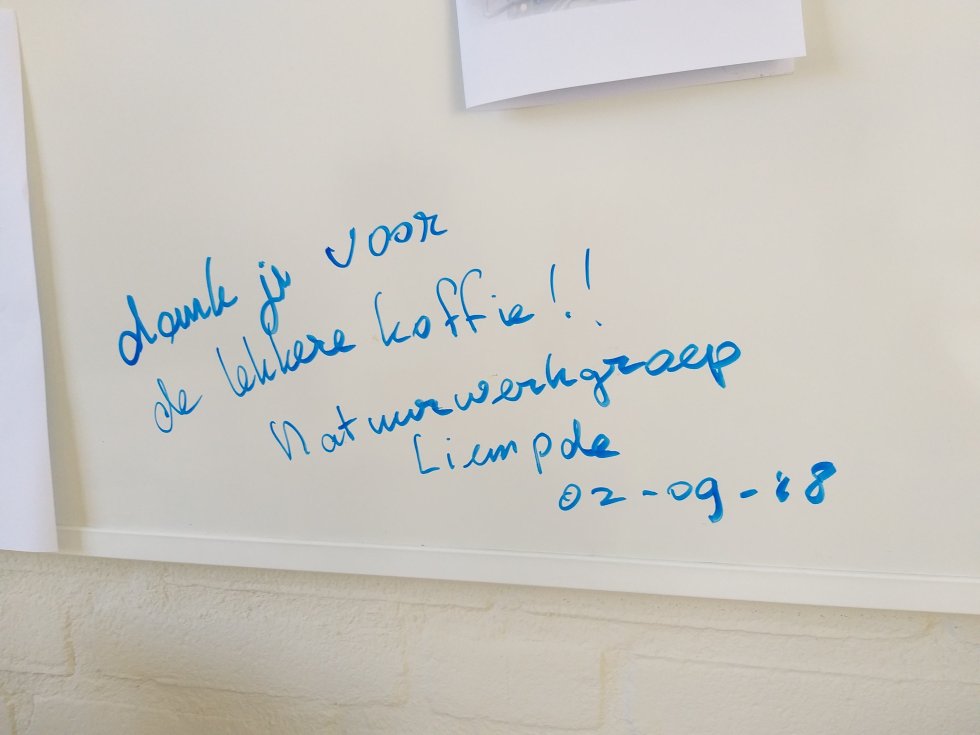 dank je voor
de lekkere koffie!!
Natuurwerkgroep
Liempde
02-09-18